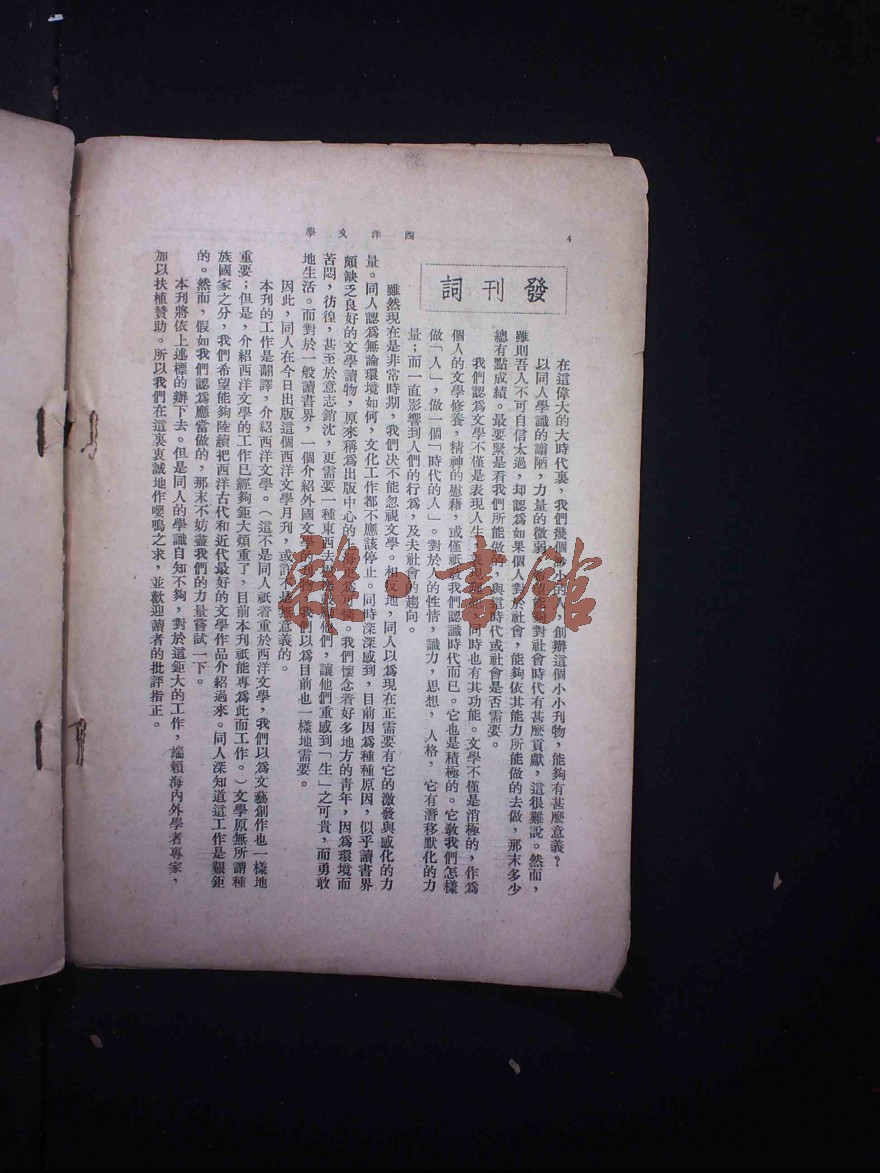 4
西洋文學
發刊詞
在這偉大的大時代裏，我們幾個的人，創辦這個小小刊物，能夠有甚麽意義？
以同人學識的譾陋，力量的微弱，希望能夠對社會時代有甚麽貢獻，這很難說。然而，
雖則吾人不可自信太過，却認爲如果個人對於社會，能夠依其能力所能做的去做，那末多少
總有點成績。最要緊是看我們所能做的，與這時代或社會是否需要。
我們認爲文學不僅是表現人生，表現，同時也有其功能。文學不僅是消極的，作爲
個人的文學修養，精神的慰藉，或僅祇教我們認識時代而已。它也是積極的。它敎我們怎樣
做「人」，做一個「時代的人」。對於人的性情，識力，思想，人格，它有潛移默化的力
量；而一直影響到人們的行爲，及夫社會的趨向。
雖然現在是非常時期，我們決不能忽視文學。相反地，同人以爲現在正需要有它的激發與感化的力
量。同人認爲無論環境如何，文化工作都不應該停止。同時深深感到，目前因爲種種原因，似乎讀書界
頗缺乏良好的文學讀物，原來稱爲出版中心的上海更爲可憐。我們懷念着好多地方的青年，因爲環境而
苦悶，彷徨，甚至於意志銷沈，更需要一種東西去他們，讓他們重感到「生」之可貴，而勇敢
地生活。而對於一般讀書界，一個介紹外國文學的刊物，我們以爲目前也一樣地需要。
因此，同人在今日出版這個西洋文學月刊，或許不是無意義的。
本刊的工作是翻譯，介紹西洋文學。（這不是同人祇着重於西洋文學，我們以爲文藝創作也一樣地
重要；但是，介紹西洋文學的工作已經夠鉅大煩重了，目前本刊祇能專爲此而工作。）文學原無所謂種
族國家之分，我們希望能夠陸續把西洋古代和近代最好的文學作品介紹過來。同人深知道這工作是艱鉅
的。然而，假如我們認爲應當做的，那末不妨盡我們的力量嘗試一下。
本刊將依上述標的辦下去。但是同人的學識自知不夠，對於這鉅大的工作，端賴海內外學者專家，
加以扶植贊助。所以我們在這裏衷誠地作嚶鳴之求，並歡迎讀者的批評指正。
雜·書館